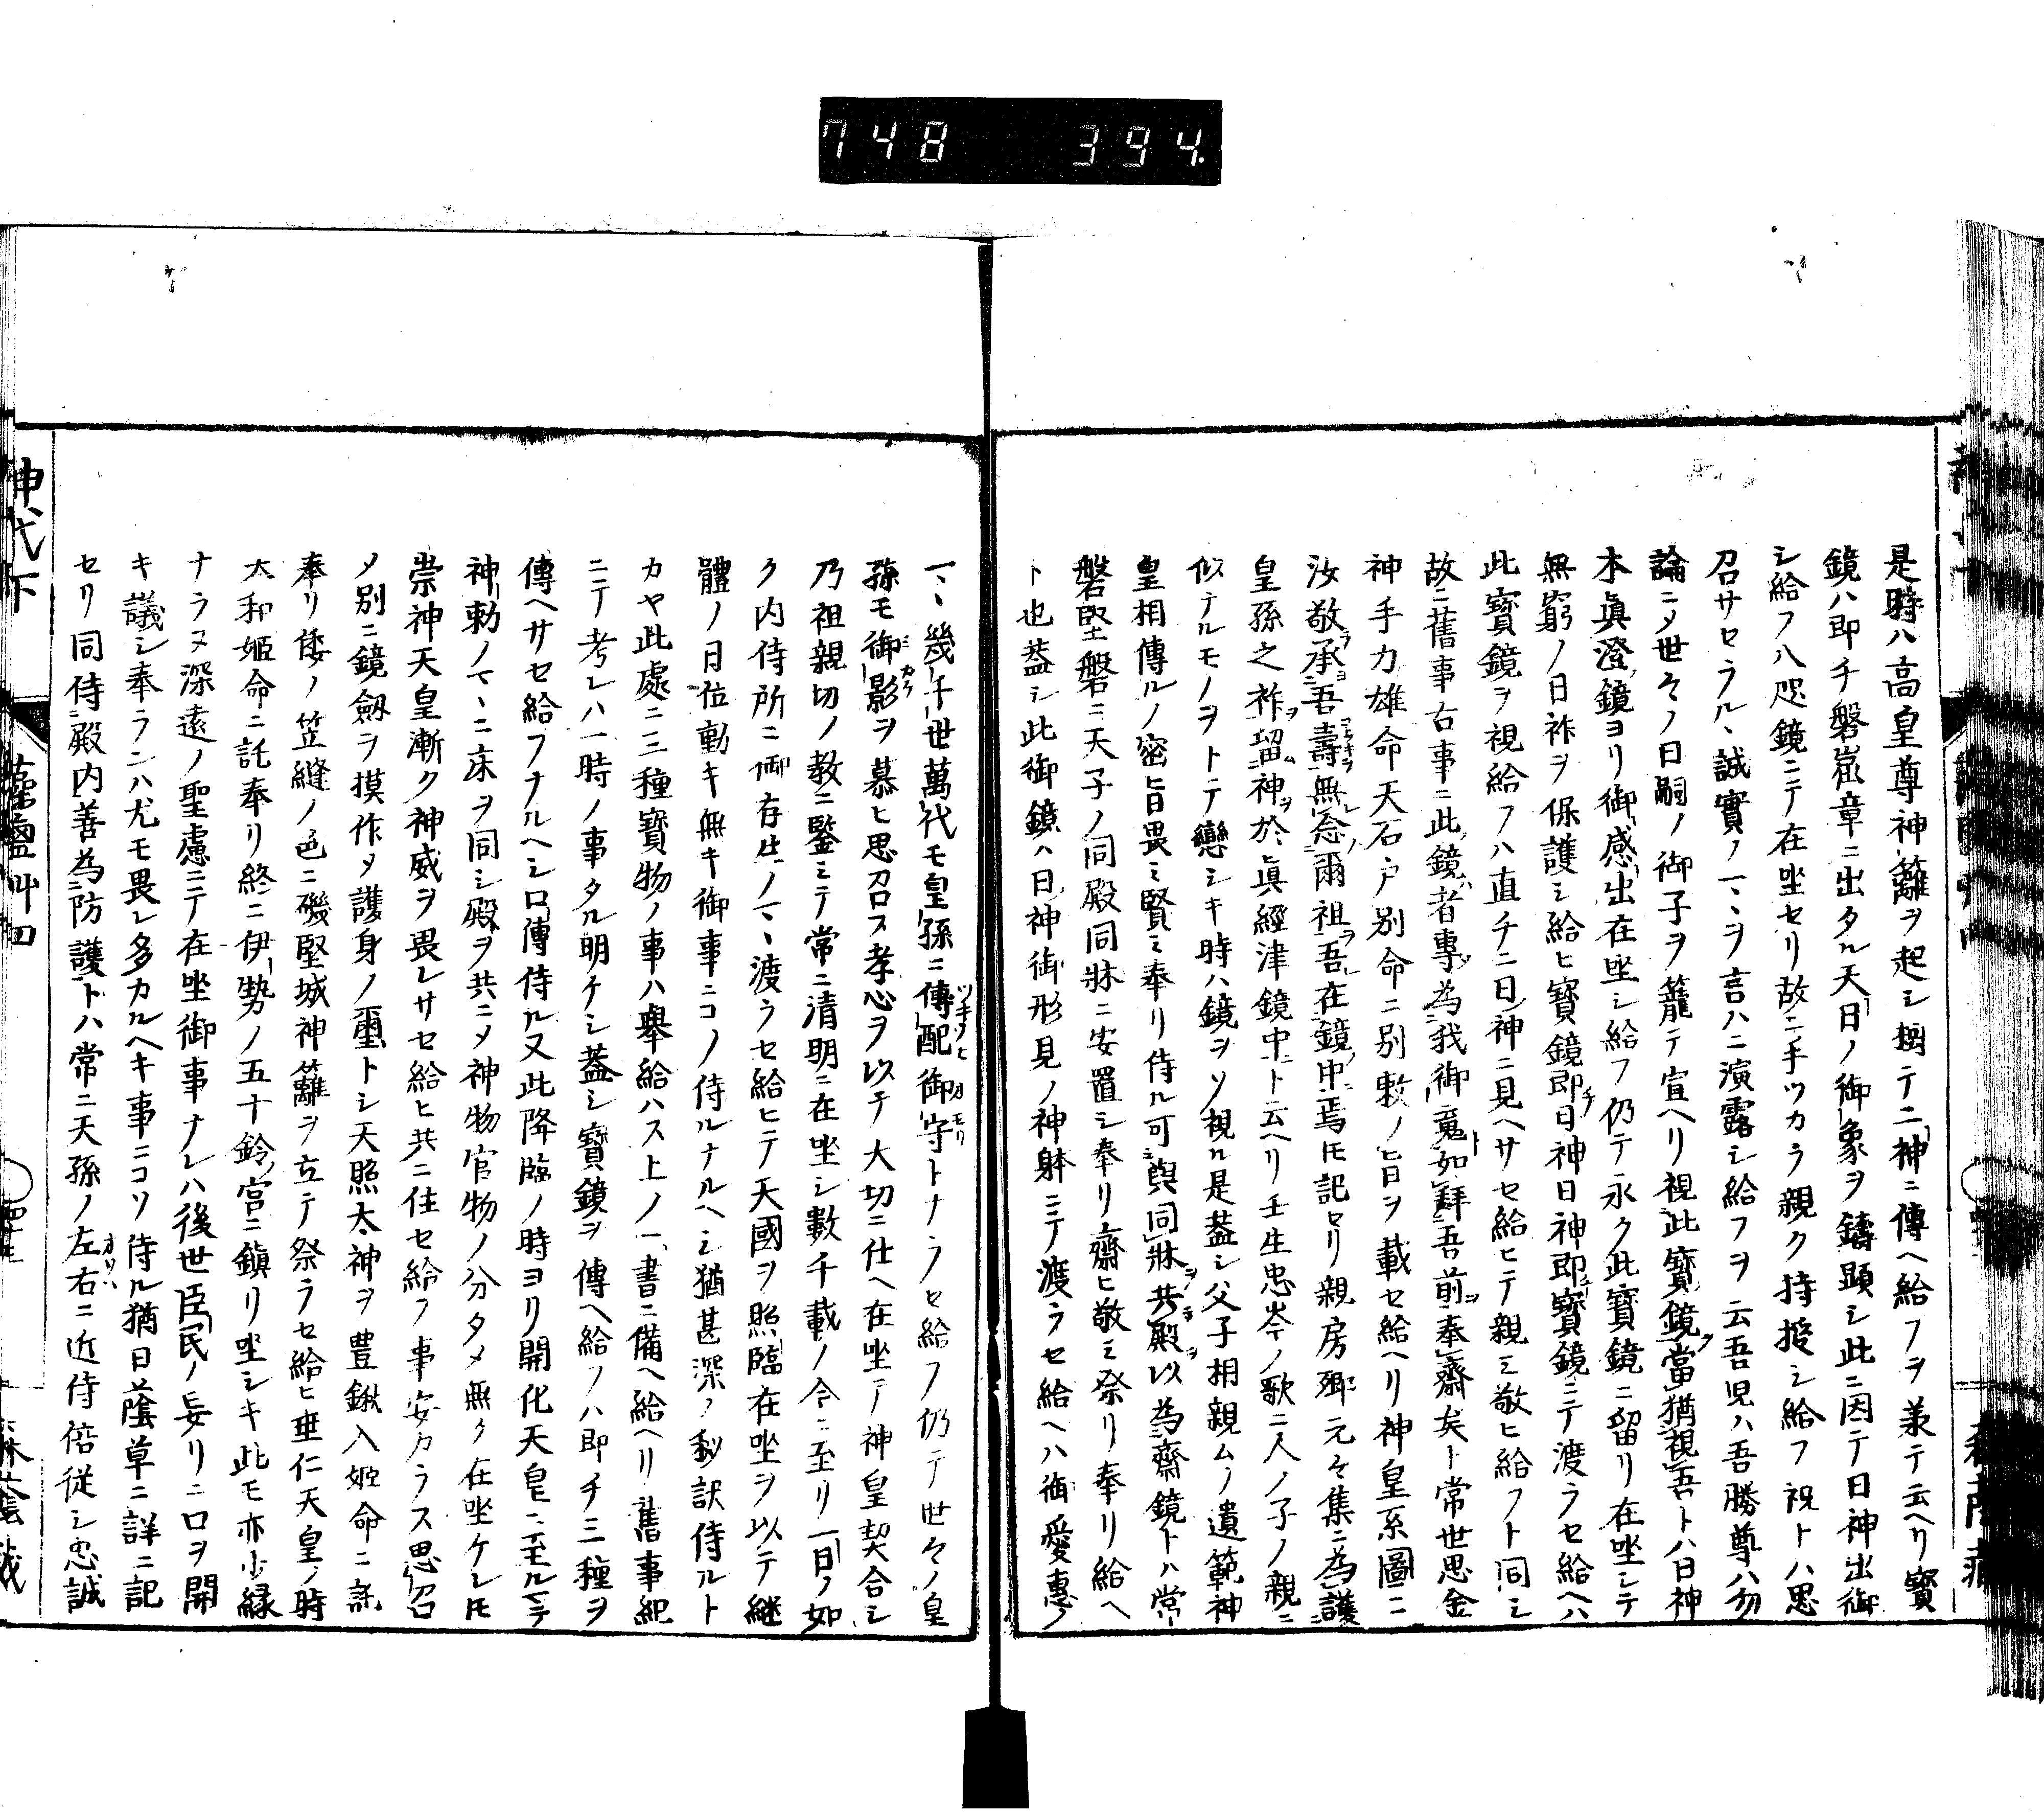 748 394.
是時ハ高皇尊神籬ヲ起シ樹テ二神ニ傳ヘ給フヲ兼テ云ヘリ寳
鏡ハ即チ磐嵓章ニ出タル天日ノ御象ヲ鑄顕シ此ニ因テ日神出御
シ給フ八咫鏡ニテ在坐セリ故ニ手ツカラ親ク持授シ給フ祝トハ思
召サセラルヽ誠實ノ一ヽヲ言ハニ演露シ給フヲ云吾児ハ吾勝尊ハ勿
論ニメ世々ノ日嗣ノ御子ヲ籠テ宣ヘリ視此寳鏡當猶視吾トハ日神
本眞澄鏡ヨリ御感出在坐シ給フ仍テ永ク此寳鏡ニ留リ在坐シテ
無窮ノ日祚ヲ保護シ給ヒ寳鏡即日神日神即寳鏡ニテ渡ラセ給ヘハ
此寳鏡ヲ視給フハ直チニ日神ニ見ヘサセ給ヒテ親ミ敬ヒ給フト同シ
故ニ舊事古事ニ此鏡者專為我御䰟如拜吾前奉齋矣ト常世思金
神手力雄命天石戸別命ニ別敕ノ旨ヲ載セ給ヘリ神皇系圖ニ
汝敬承吾壽無念爾祖吾在鏡中焉圧記セリ親房郷元々集ニ為護
皇孫之祚留神於眞經津鏡中ト云ヘリ壬生忠岑ノ歌ニ人ノ子ノ親ニ
似テルモノヲトテ戀シキ時ハ鏡ヲソ視ル是蓋シ父子相親ムノ遺範神
皇相傳ルノ密旨畏ミ賢ミ奉リ侍ル可與同牀共殿以為齋鏡トハ常
磐堅磐ニ天子ノ同殿同牀ニ安置シ奉リ齋ヒ敬ミ祭リ奉リ給ヘ
ト也蓋シ此御鏡ハ日神御形見ノ神躰ニテ渡ラセ給ヘハ御愛惠ノ
一ヽ幾千世萬代モ皇孫ニ傳配御守トナラセ給フ仍テ世々ノ皇
孫モ御影ヲ慕ヒ思召ス孝心ヲ以テ大切ニ仕ヘ在坐テ神皇契合シ
乃祖親切ノ教ニ鑒ミテ常ニ清明ニ在坐シ數千載ノ今ニ至リ一日ノ如
ク内侍所ニ御存生ノ一ヽ渡ラセ給ヒテ天國ヲ照臨在坐ヲ以テ継
體ノ日位動キ無キ御事ニコノ侍ルナルヘシ猶甚深ノ秘訳侍ルト
カヤ此處ニ三種寳物ノ事ハ舉給ハス上ノ一書ニ備ヘ給ヘリ舊事紀
ニテ考レハ一時ノ事タル明ケシ蓋シ寳鏡ヲ傳ヘ給フハ即チ三種ヲ
傳ヘサセ給フナルヘシ口傳侍ル又此降臨ノ時ヨリ開化天皇ニ至ルマテ
神勅ノマヽニ床ヲ同シ殿ヲ共ニメ神物官物ノ分タメ無ク在坐ケレ圧
崇神天皇漸ク神威ヲ畏レサセ給ヒ共ニ住セ給フ事安カラス思召
メ別ニ鏡劔ヲ摸作メ護身ノ璽トシ天照太神ヲ豊鍬入姫命ニ託
奉リ倭ノ笠縫ノ邑ニ磯堅城神籬ヲ立テ祭ラセ給ヒ垂仁天皇ノ時
大和姫命ニ託奉リ終ニ伊勢ノ五十鈴宮ニ鎮リ坐シキ此モ亦少縁
ナラヌ深遠ノ聖慮ニテ在坐御事ナレハ後世臣民ノ妄リニ口ヲ開
キ議シ奉ランハ尤モ畏レ多カルヘキ事ニコソ侍ル猶日蔭草ニ詳ニ記
セリ同侍殿内善為防護トハ常ニ天孫ノ左右ニ近侍倍從シ忠誠
神代下 藻鹽艸四